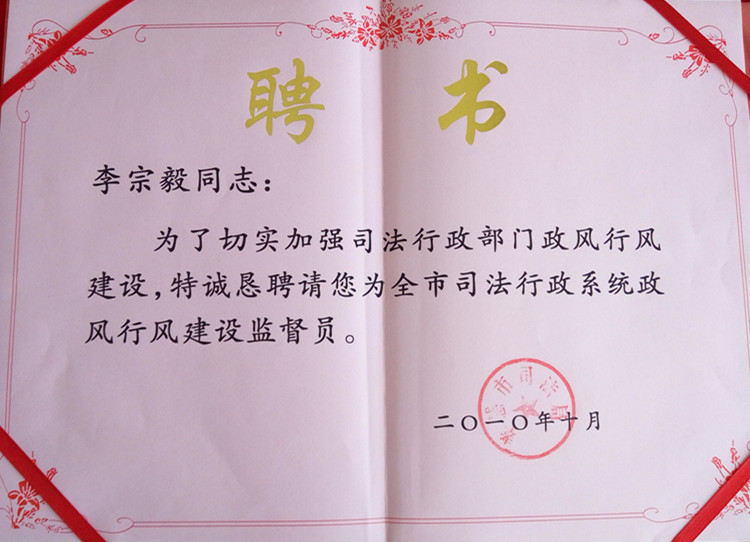 聘书
李宗毅同志：
为了切实加强司法行政部门政风行风
建设，特诚恳聘请您为全市司法行政系统政
风行风建设监督员。
市司法局
二〇一〇年十月